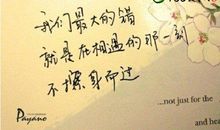 我们最大的错
就是在相遇的那一刻
不擦身而过
Payano
...not just for the
and hea